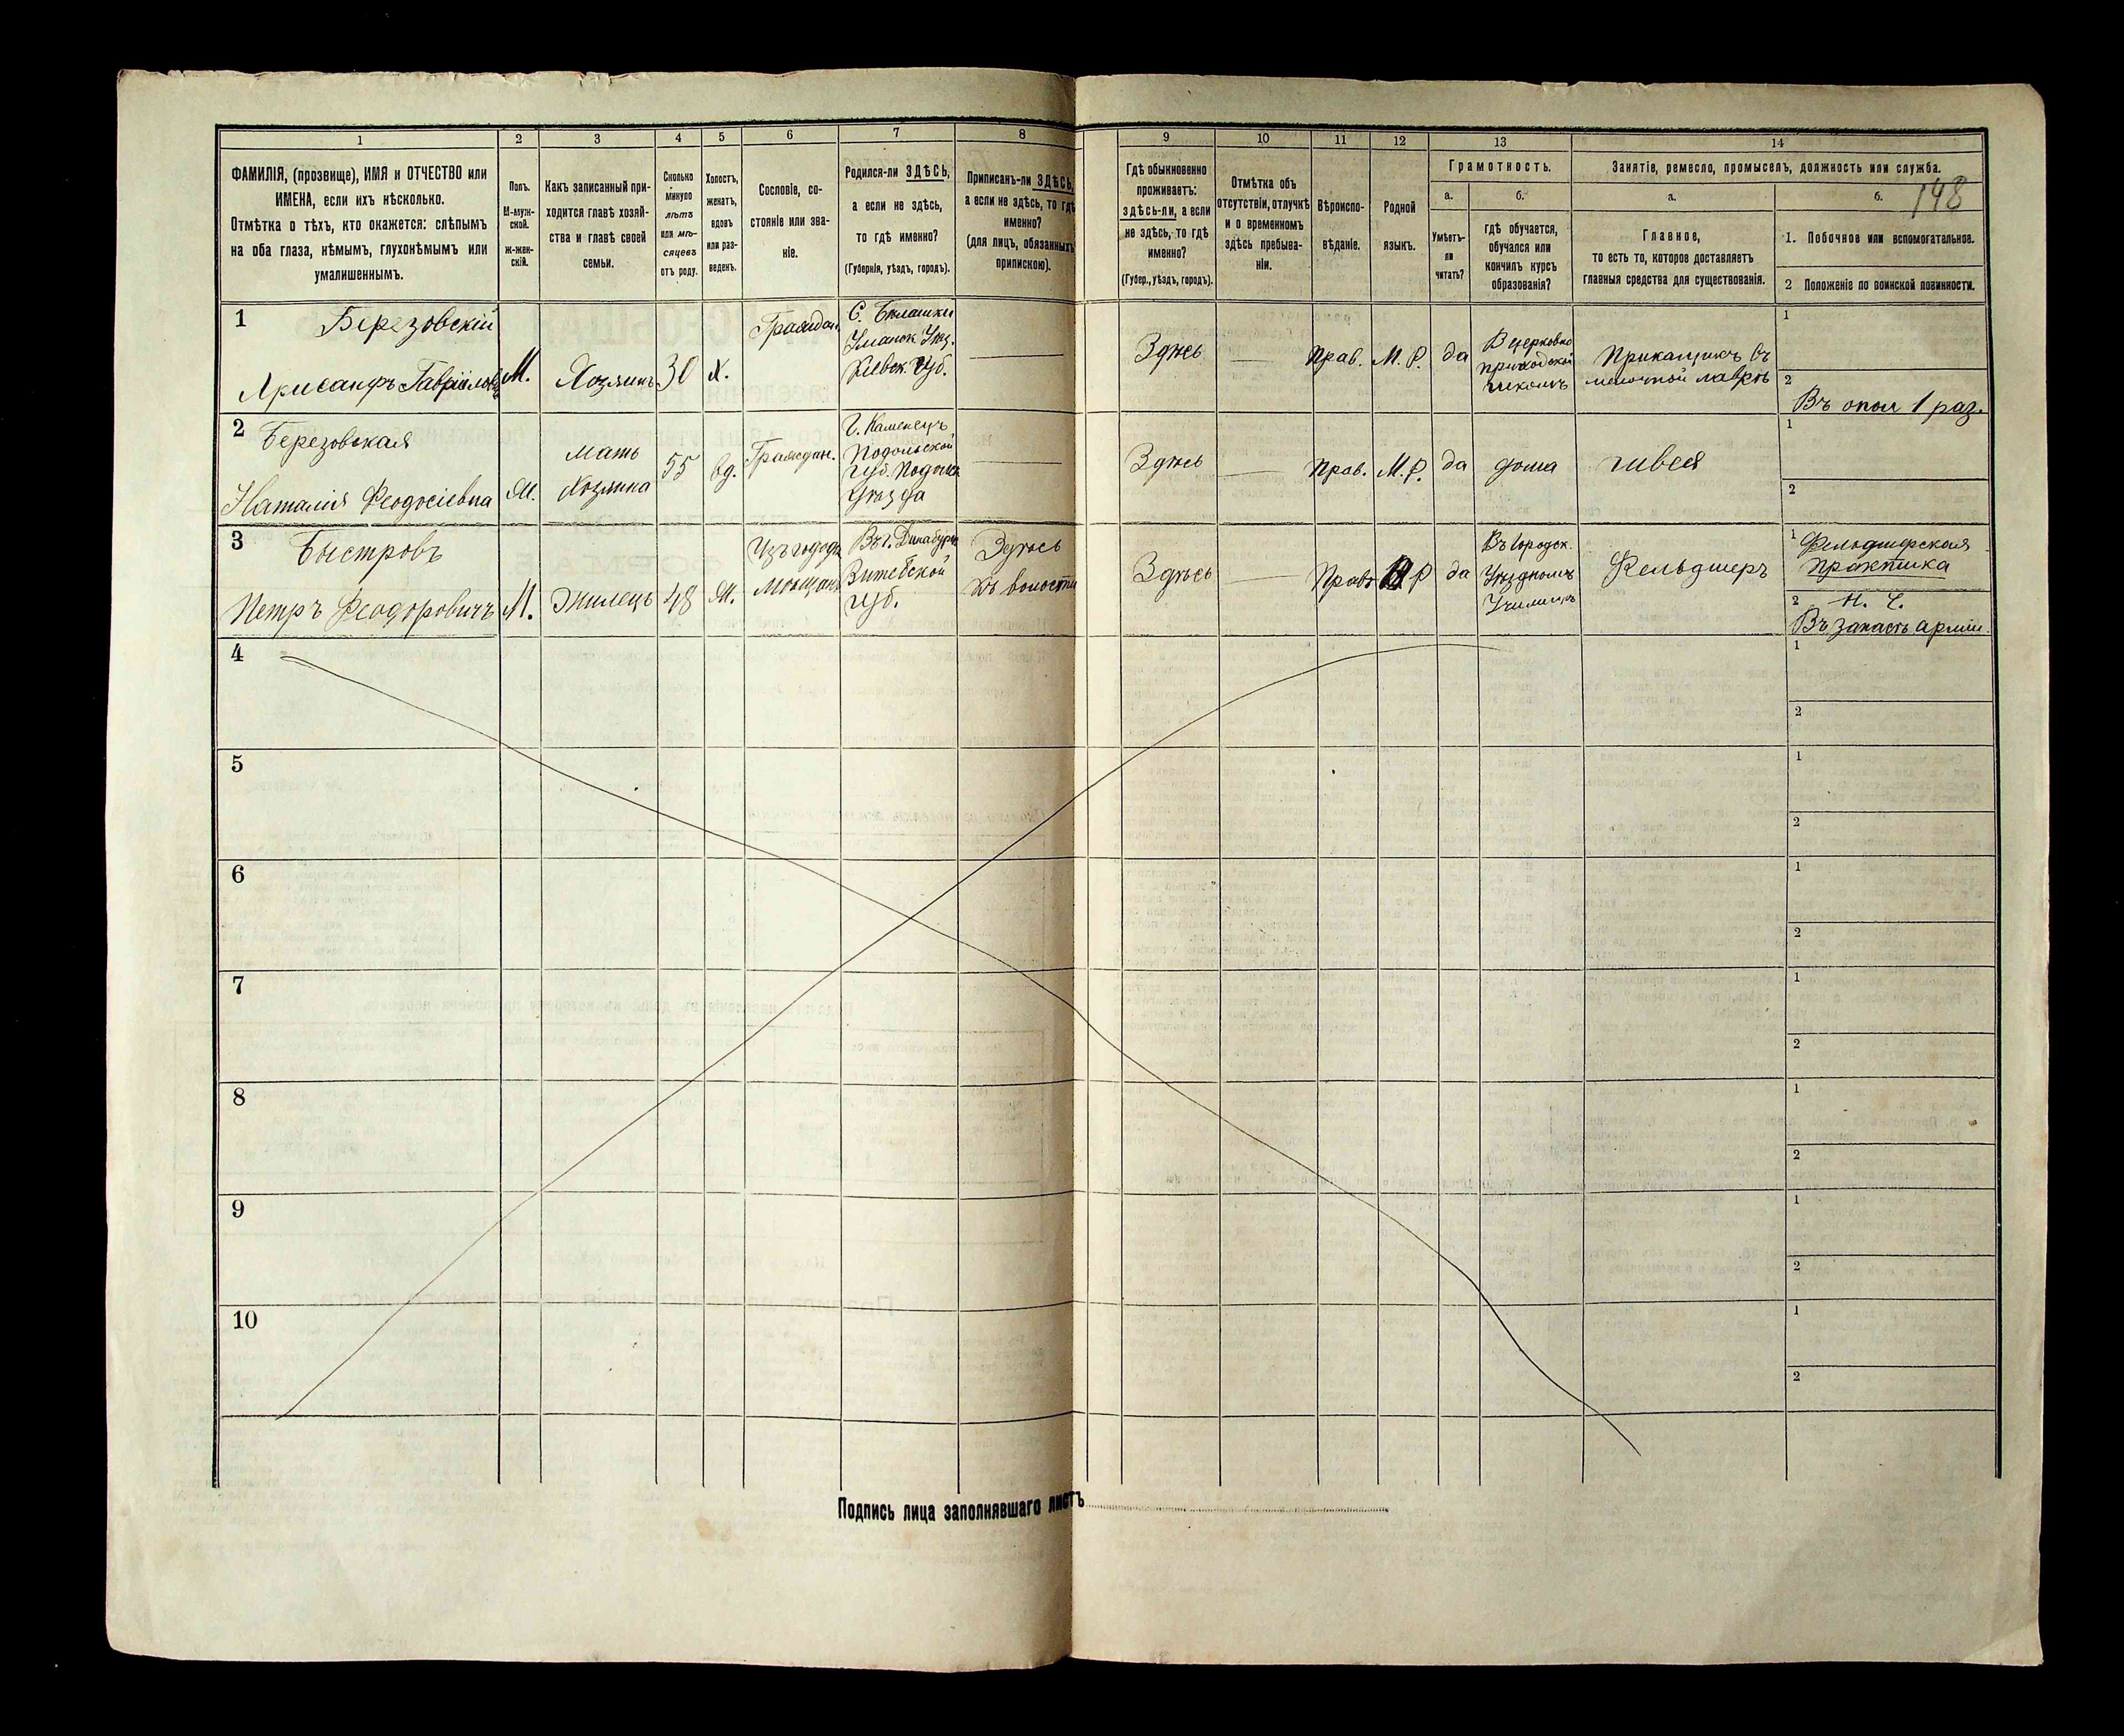 1
2
3
4
5
6
7
8
9
10
11
12
13
14
ФАМИЛІЯ, (прозвище), ИМЯ и ОТЧЕСТВО или
ИМЕНА, если ихъ нѣсколько.
Отмѣтка о тѣхъ, кто окажется: слѣпымъ
на оба глаза, нѣмымъ, глухонѣмымъ или
умалишеннымъ.
Полъ.
М-муж-
ской.
Ж-жен-
скій.
Какъ записанный при-
ходится главѣ хозяй-
ства и главѣ своей
семьи.
Сколько
минуло
лѣтъ
или мѣ-
сяцевъ
отъ роду.
Холостъ,
женатъ,
вдовъ
или раз-
веденъ.
Сословіе, со-
стояніе или зва-
ніе.
Родился-ли ЗДѢСЬ,
а если не здѣсь,
то гдѣ именно?
(Губернія, уѣздъ, городъ).
Приписанъ-ли ЗДѢСЬ,
а если не здѣсь, то гдѣ
именно?
(для лицъ, обязанныхъ
припискою).
Гдѣ обыкновенно
проживаетъ:
здѣсь-ли, а если
не здѣсь, то гдѣ
именно?
(Губер., уѣздъ, городъ).
Отмѣтка объ
отсутствіи, отлучкѣ
и о временномъ
здѣсь пребыва-
ніи.
Вѣроиспо-
вѣданіе.
Родной
языкъ.
Грамотность.
а.
Умѣетъ-
ли
читать?
б.
гдѣ обучается,
обучался или
кончилъ курсъ
образованія?
Занятіе, ремесло, промыселъ, должность или служба.
а.
Главное,
то есть то, которое доставляетъ
главныя средства для существованія.
б.
148
1. Побочное или вспомогательное.
2 Положеніе по воинской повинности.
1
Березовскій
Гавріиловъ
М.
Хозяинъ
30
Х.
Граждан.
Кіевск. губ.
Здѣсь
Прав.
М. Р.
да
В церковно
приходской
школѣ
Прикащикъ въ
мелочной лавкѣ
1
2
Въ опол 1 раз.
2
Березовская
Наталія Феодосіевна
М.
мать
Хозяина
55
вд.
Граждан.
Г. Каменецъ
Подольской
губ. Подольск
Уѣзда
Здѣсь
Прав.
М. Р.
да
дома
швея
1
2
3
Быстровъ
Петръ Феодоровичъ
М.
Жилецъ
48
Ж.
Мѣщанъ
Въ г. Динабурѣ
Витебской
губ.
Здѣсь
въ волости
Здѣсь
Прав.
Р
да
Въ Городск.
Уѣздномъ
Училищѣ
Фельдшеръ
1
Фельдшерская
Практика
2
Н. Ч.
Въ запасѣ арміи.
4
1
2
5
1
2
6
1
2
7
1
2
8
1
2
9
1
2
10
1
2
Подпись лица заполнявшаго листъ